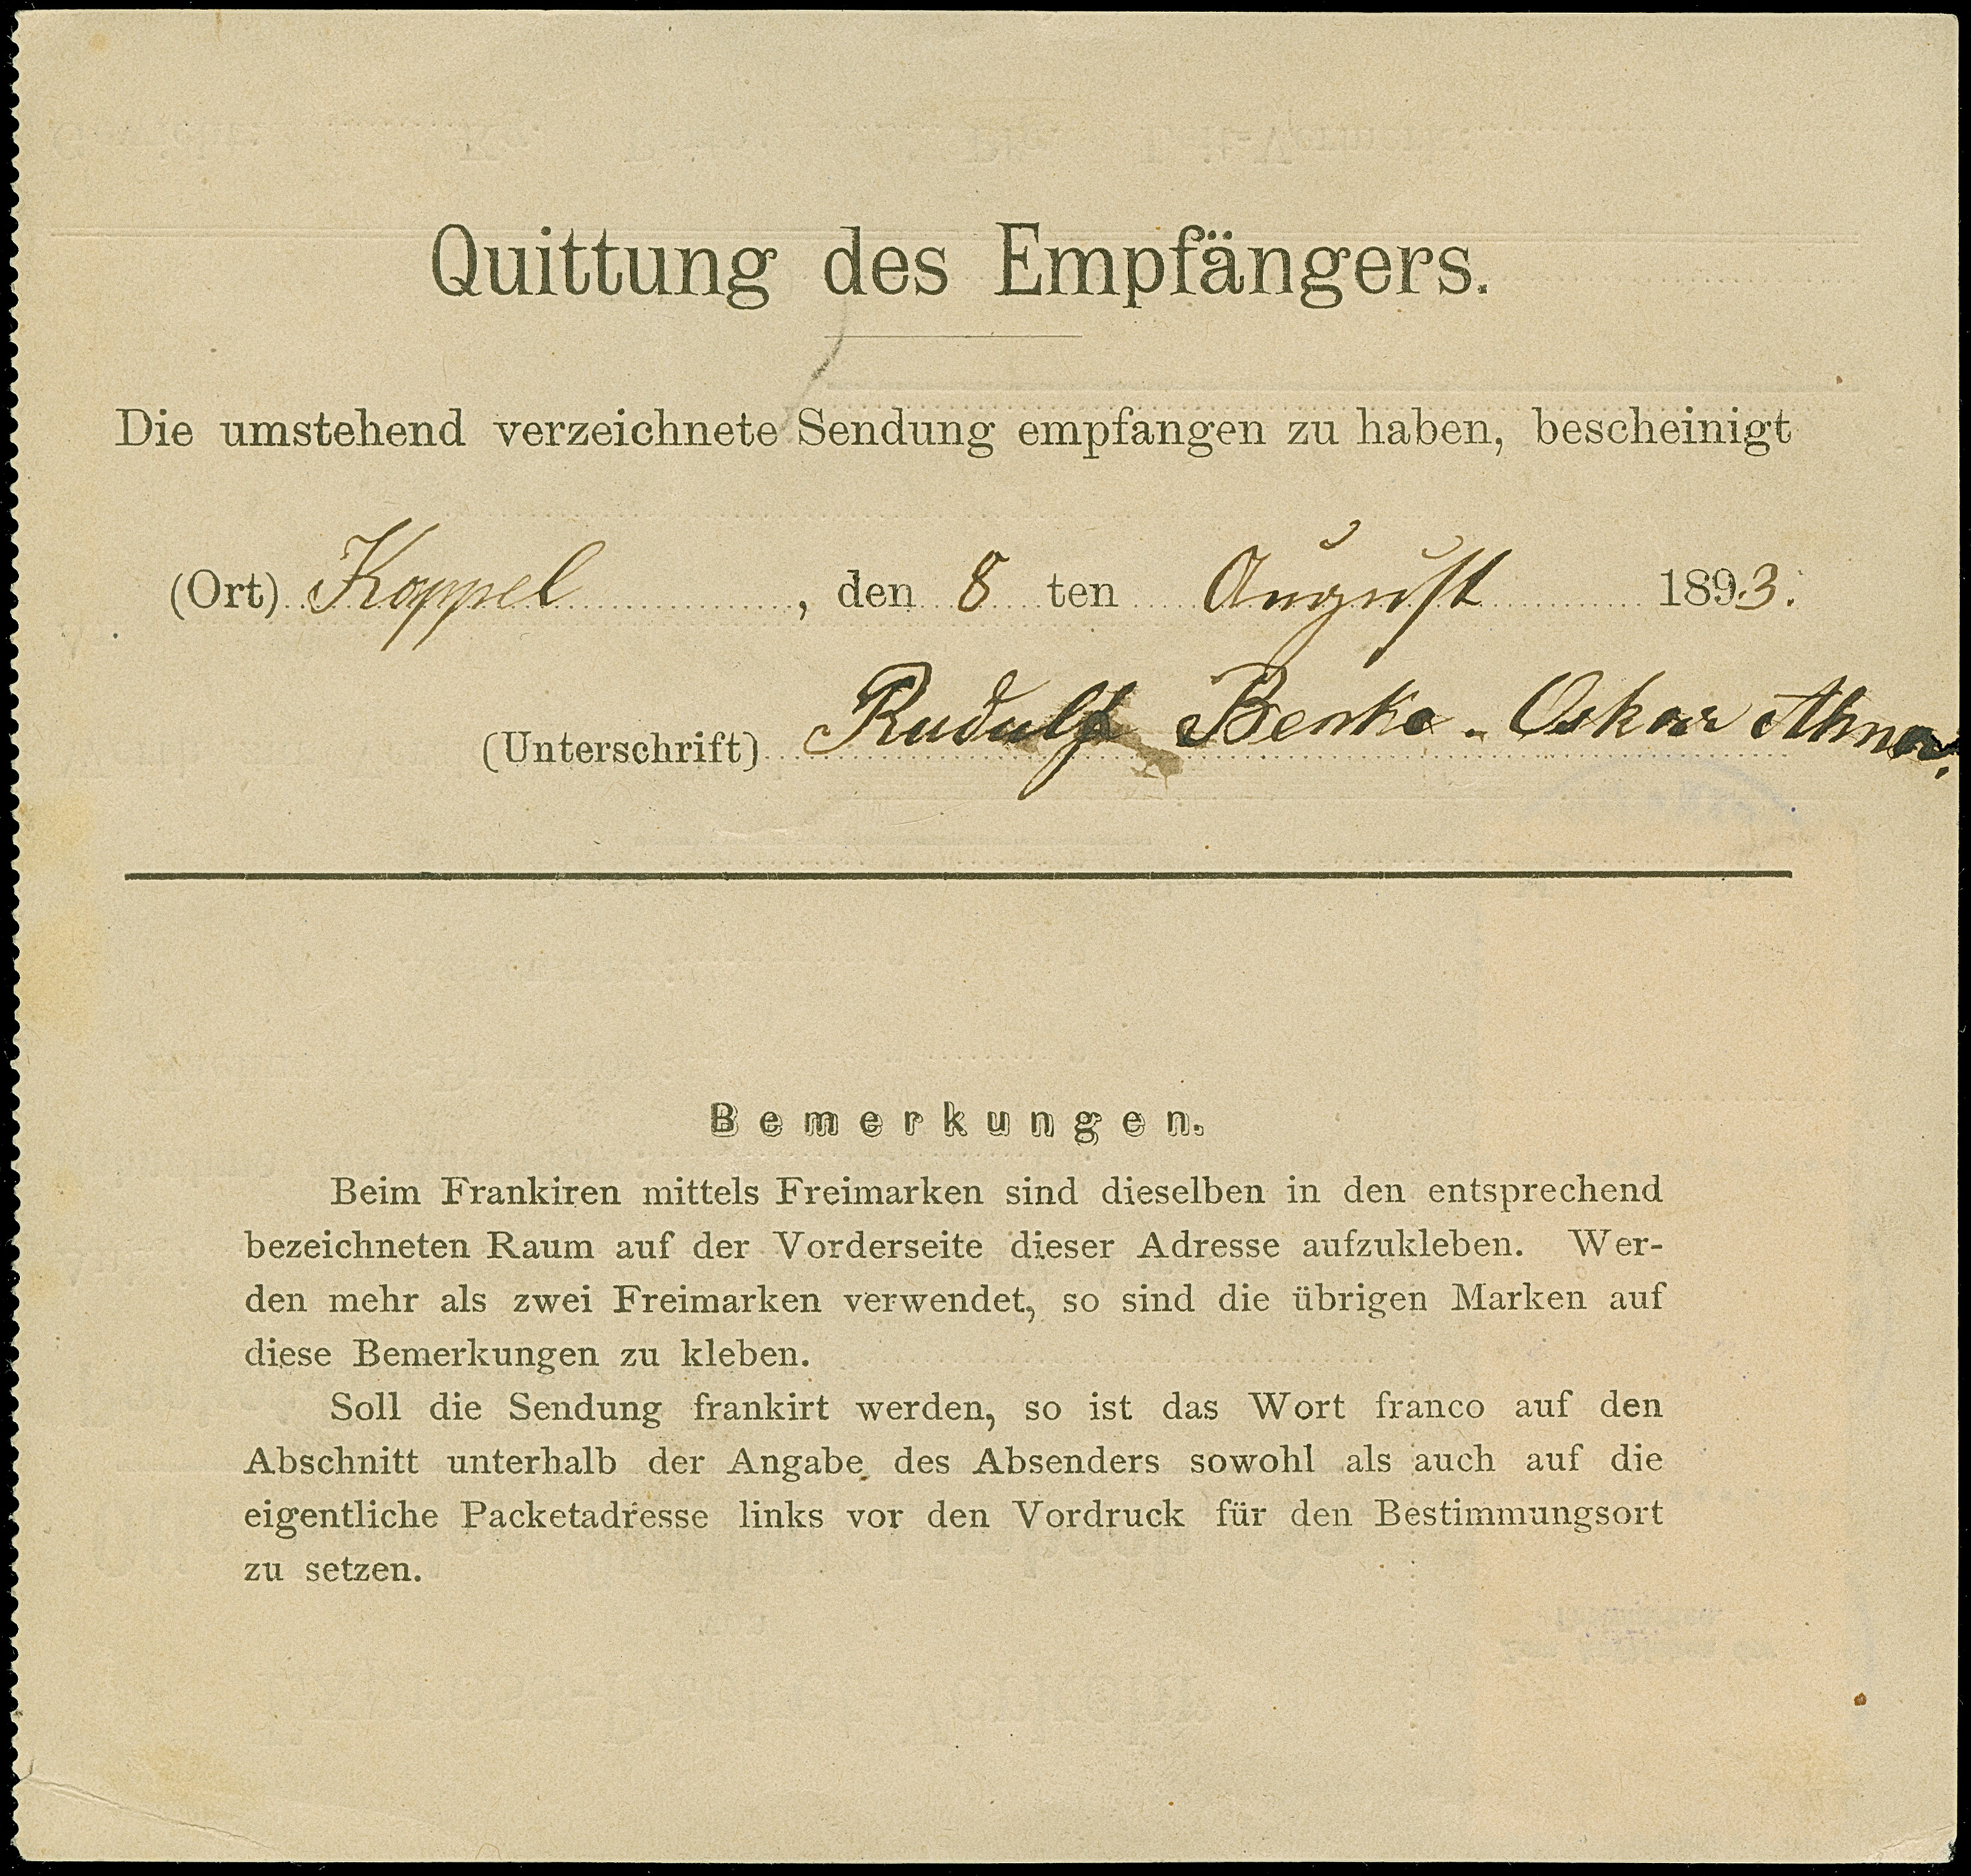 Quittung des Empfängers.
Die umstehend verzeichnete Sendung empfangen zu haben, bescheinigt
(Ort) Koppel, den 8 ten August 1893.
(Unterschrift) Rudolf Benke. Oskar
Bemerkungen.
Beim Frankiren mittels Freimarken sind dieselben in den entsprechend
bezeichneten Raum auf der Vorderseite dieser Adresse aufzukleben. Wer-
den mehr als zwei Freimarken verwendet, so sind die übrigen Marken auf
diese Bemerkungen zu kleben.
Soll die Sendung frankirt werden, so ist das Wort franco auf den
Abschnitt unterhalb der Angabe des Absenders sowohl als auch auf die
eigentliche Packetadresse links vor den Vordruck für den Bestimmungsort
zu setzen.